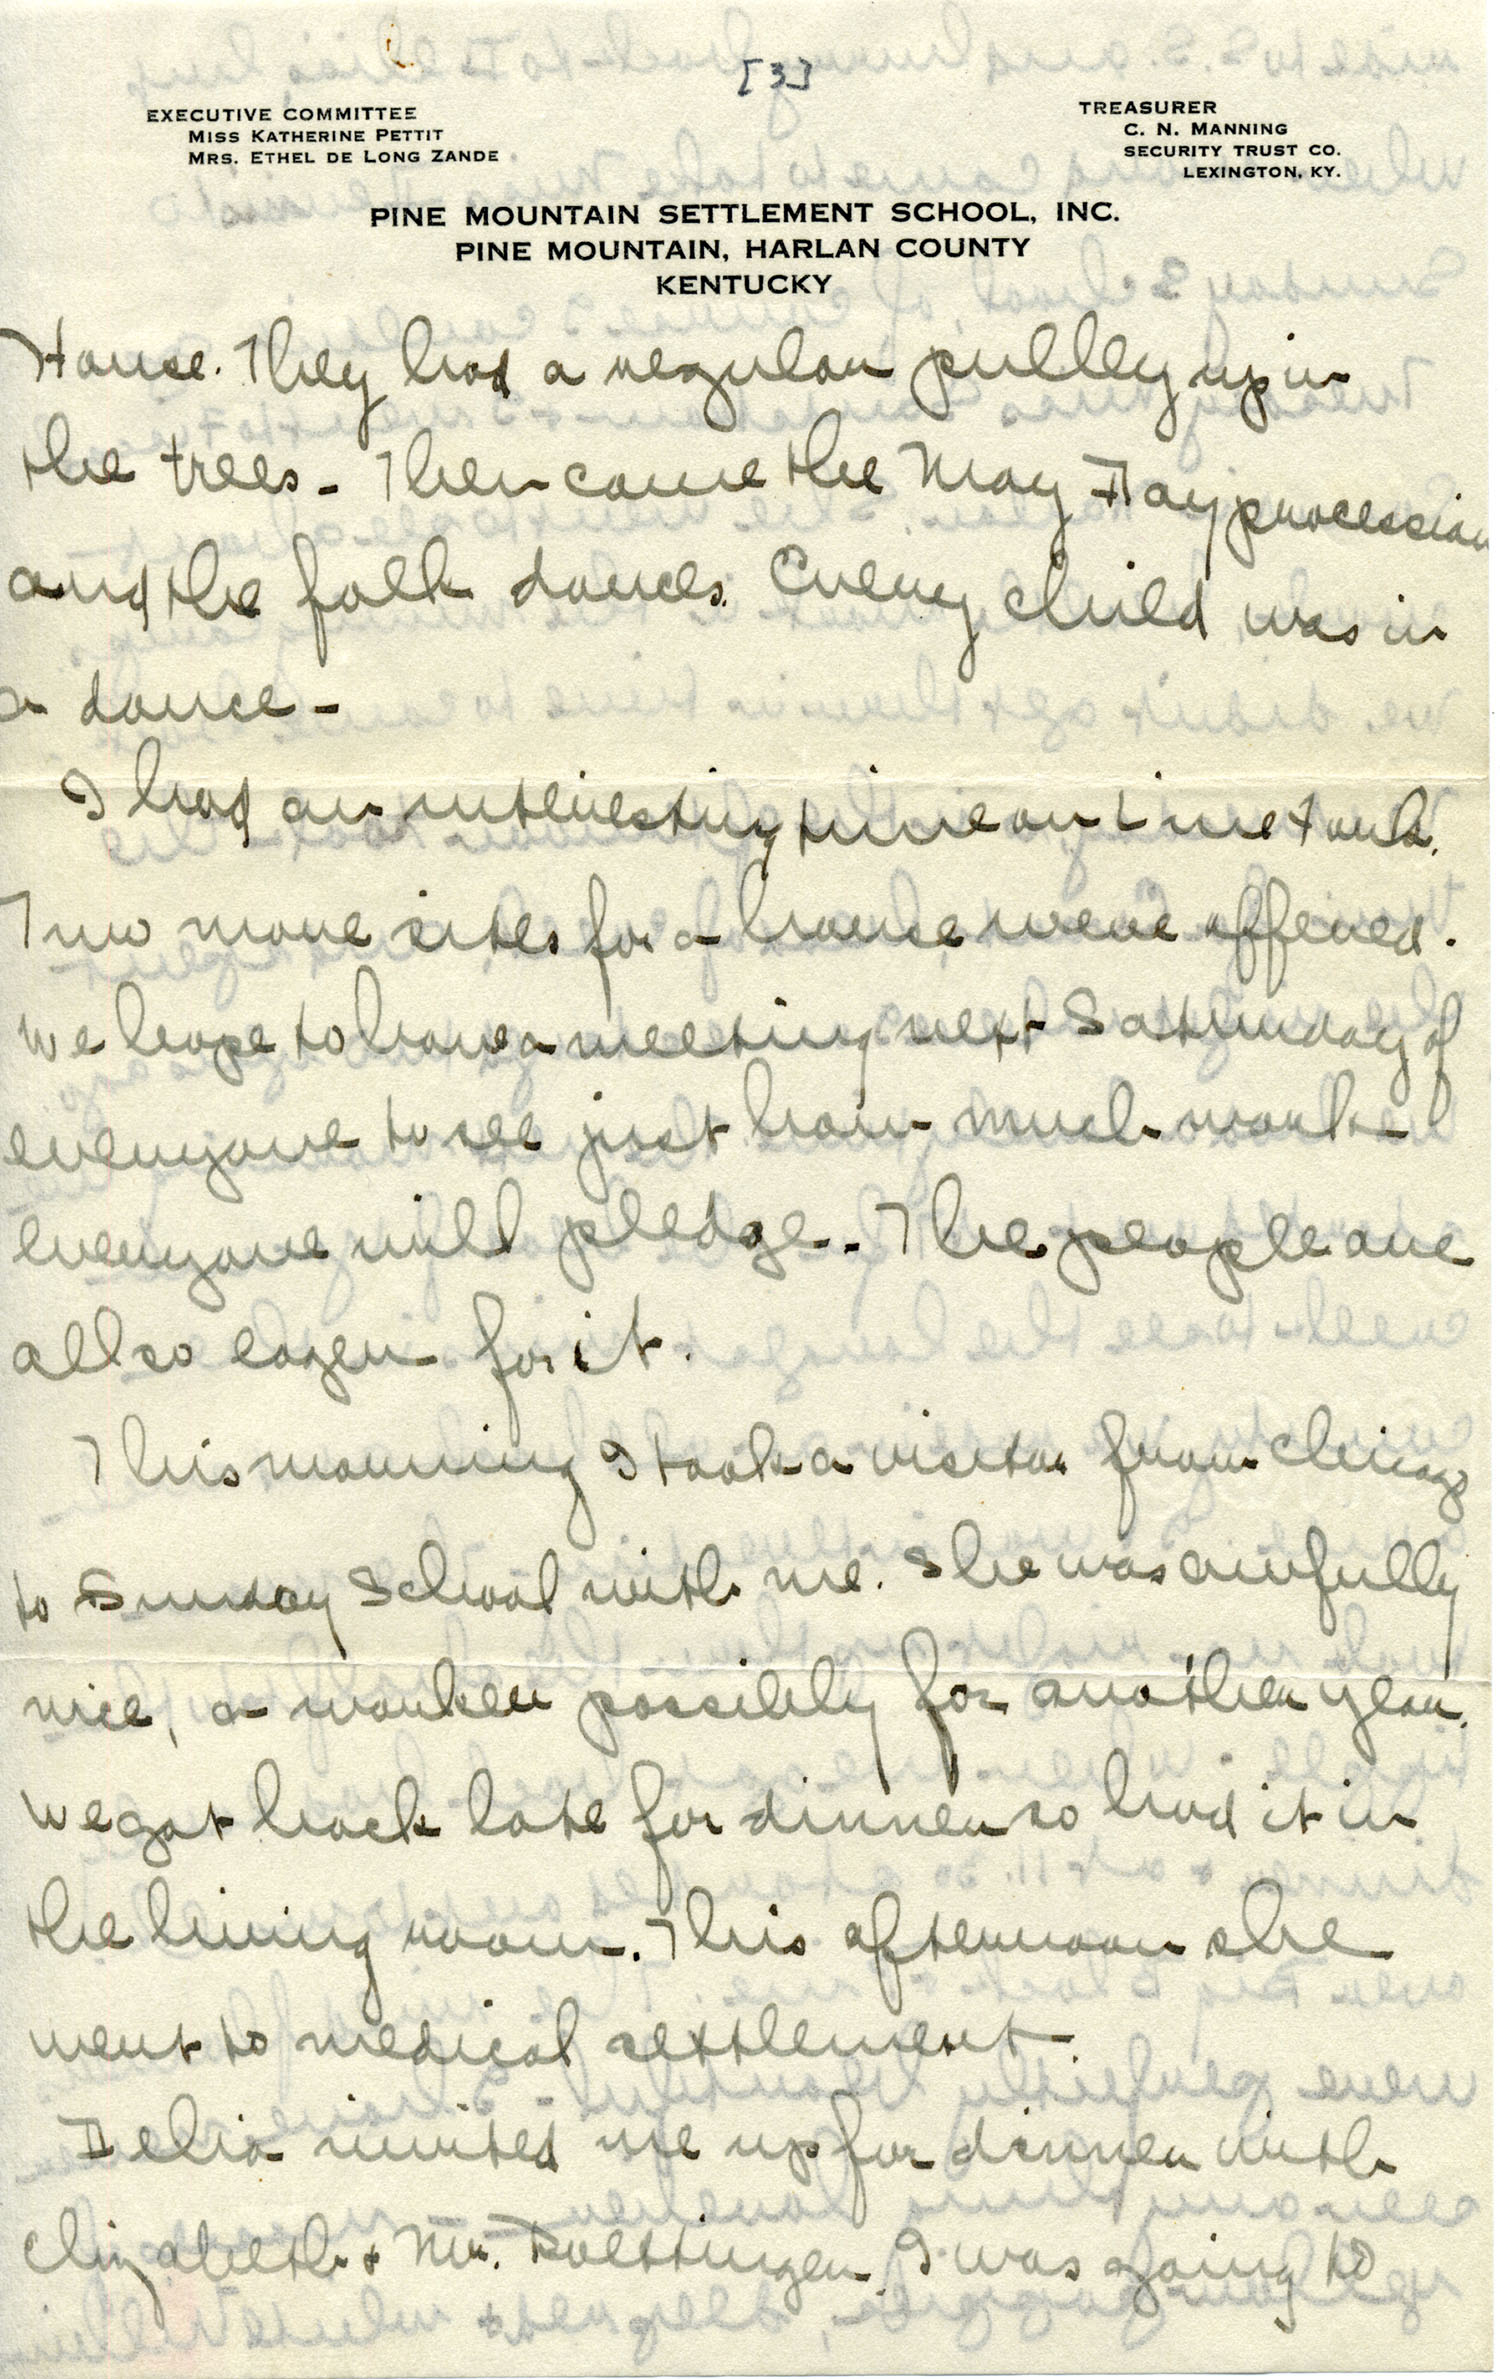 [3]
EXECUTIVE COMMITTEE
MISS KATHERINE PETTIT
MRS. ETHEL DE LONG ZANDE
TREASURER
C. N. MANNING
SECURITY TRUST CO.
LEXINGTON, KY.
PINE MOUNTAIN SETTLEMENT SCHOOL, INC.
PINE MOUNTAIN, HARLAN COUNTY
KENTUCKY
House. They had a regular pulley up in
the trees - Then came the May Day procession
and the folk dances. Every child was in
a dance -
I had an interesting time on Line Fork.
Two more sites for a house were offered.
We hope to have a meeting next Saturday of
everyone to see just how much work
everyone will pledge. The people are
all so eager for it.
This morning I took a visitor from Chicago
to Sunday School with me. She was awfully
nice, a worker possibly for another year.
We got back late for dinner so had it in
the living room. This afternoon she
went to medical settlement.
Delia invited me up for dinner with
Elizabeth & Mr. Roettinger. I was going to